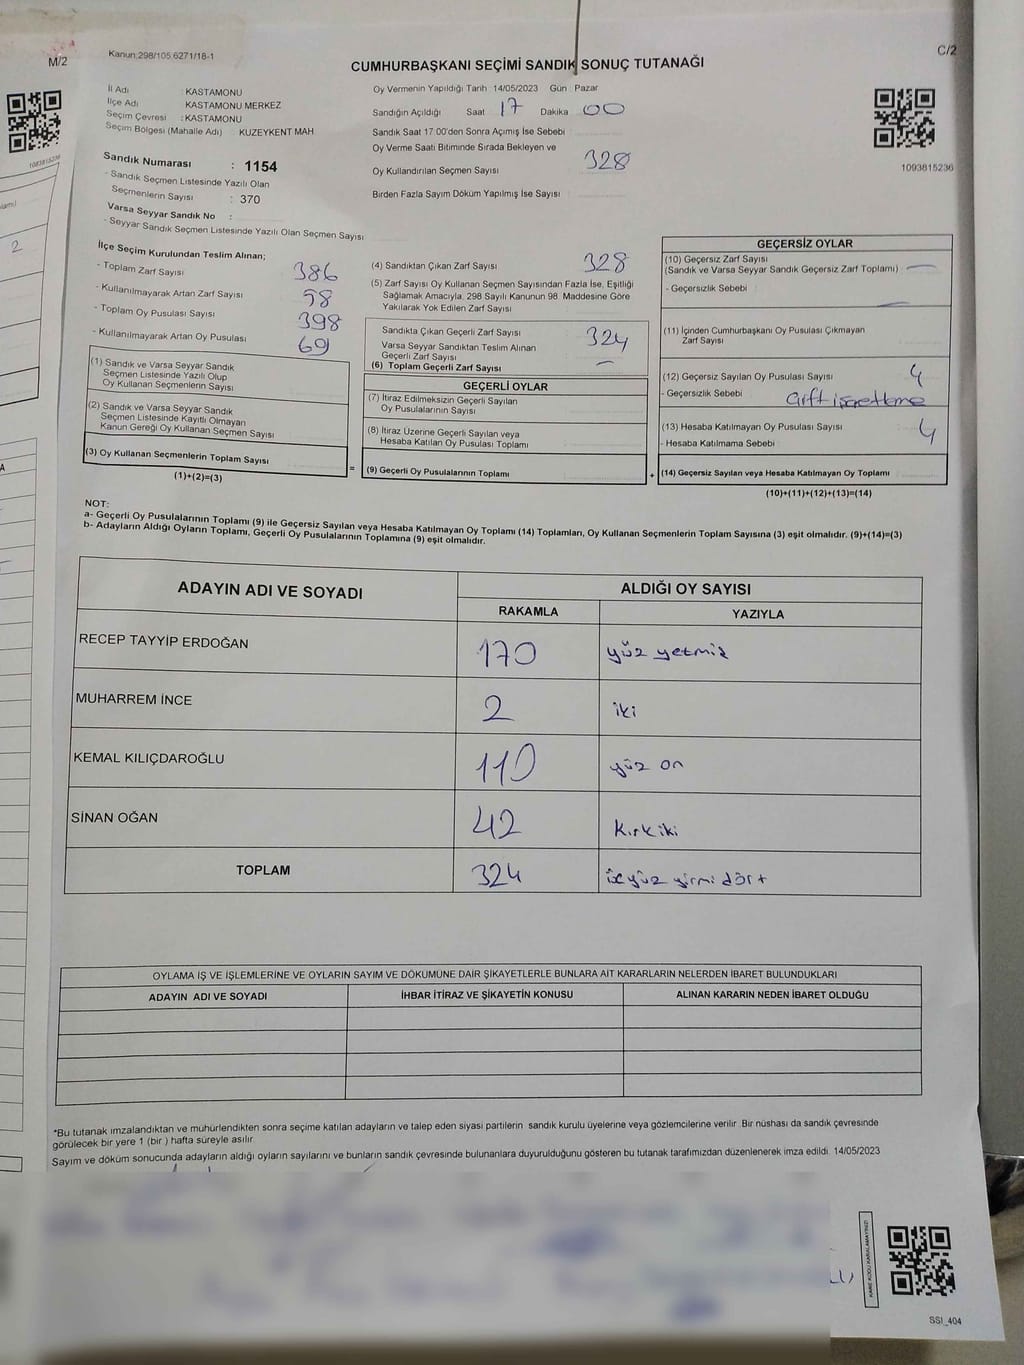 M/2
Kanun:298/105 6271/18-1
CUMHURBAŞKANI SEÇİMİ SANDIK SONUÇ TUTANAĞI
C/2
İl Adı : KASTAMONU
İlçe Adı KASTAMONU MERKEZ
Seçim Çevresi : KASTAMONU
Seçim Bölgesi (Mahalle Adı) : KUZEYKENT MAH
Oy Vermenin Yapıldığı Tarih 14/05/2023 Gün : Pazar
Sandığın Açıldığı Saat 17 Dakika 00
Sandık Saat 17 00'den Sonra Açımış İse Sebebi
Oy Verme Saati Bitiminde Sırada Bekleyen ve
Oy Kullandırılan Seçmen Sayısı 328
Birden Fazla Sayım Döküm Yapılmış İse Sayısı
1093815236
1093815236
Sandık Numarası : 1154
- Sandık Seçmen Listesinde Yazılı Olan
Seçmenlerin Sayısı : 370
Varsa Seyyar Sandık No :
- Seyyar Sandık Seçmen Listesinde Yazılı Olan Seçmen Sayısı
İlçe Seçim Kurulundan Teslim Alınan;
- Toplam Zarf Sayısı 386
- Kullanılmayarak Artan Zarf Sayısı 58
- Toplam Oy Pusulası Sayısı 398
- Kullanılmayarak Artan Oy Pusulası 69
(1) Sandık ve Varsa Seyyar Sandık
Seçmen Listesinde Yazılı Olup
Oy Kullanan Seçmenlerin Sayısı
(2) Sandık ve Varsa Seyyar Sandık
Seçmen Listesinde Kayıtlı Olmayan
Kanun Gereği Oy Kullanan Seçmen Sayısı
(3) Oy Kullanan Seçmenlerin Toplam Sayısı
(1)+(2)=(3)
(4) Sandıktan Çıkan Zarf Sayısı 328
(5) Zarf Sayısı Oy Kullanan Seçmen Sayısından Fazla İse, Eşitliği
Sağlamak Amacıyla, 298 Sayılı Kanunun 98. Maddesine Göre
Yakılarak Yok Edilen Zarf Sayısı
Sandıkta Çıkan Geçerli Zarf Sayısı 324
Varsa Seyyar Sandıktan Teslim Alınan
Geçerli Zarf Sayısı
(6) Toplam Geçerli Zarf Sayısı
GEÇERLİ OYLAR
(7) İtiraz Edilmeksizin Geçerli Sayılan
Oy Pusulalarının Sayısı
(8) İtiraz Üzerine Geçerli Sayılan veya
Hesaba Katılan Oy Pusulası Toplamı
= (9) Geçerli Oy Pusulalarının Toplamı +
GEÇERSİZ OYLAR
(10) Geçersiz Zarf Sayısı
(Sandık ve Varsa Seyyar Sandık Geçersiz Zarf Toplamı)
- Geçersizlik Sebebi :
(11) İçinden Cumhurbaşkanı Oy Pusulası Çıkmayan
Zarf Sayısı
(12) Geçersiz Sayılan Oy Pusulası Sayısı 4
- Geçersizlik Sebebi Çift işaretleme
(13) Hesaba Katılmayan Oy Pusulası Sayısı 4
- Hesaba Katılmama Sebebi
(14) Geçersiz Sayılan veya Hesaba Katılmayan Oy Toplamı
(10)+(11)+(12)+(13)=(14)
NOT:
a- Geçerli Oy Pusulalarının Toplamı (9) ile Geçersiz Sayılan veya Hesaba Katılmayan Oy Toplamı (14) Toplamları, Oy Kullanan Seçmenlerin Toplam Sayısına (3) eşit olmalıdır. (9)+(14)=(3)
b- Adayların Aldığı Oyların Toplamı, Geçerli Oy Pusulalarının Toplamına (9) eşit olmalıdır.
ADAYIN ADI VE SOYADI ALDIĞI OY SAYISI
RAKAMLA YAZIYLA
RECEP TAYYİP ERDOĞAN 170 yüz yetmiş
MUHARREM İNCE 2 iki
KEMAL KILIÇDAROĞLU 110 yüz on
SİNAN OĞAN 42 Kırkiki
TOPLAM 324 üçyüz yirmi dört
OYLAMA İŞ VE İŞLEMLERİNE VE OYLARIN SAYIM VE DÖKÜMÜNE DAİR ŞİKAYETLERLE BUNLARA AİT KARARLARIN NELERDEN İBARET BULUNDUKLARI
ADAYIN ADI VE SOYADI İHBAR İTİRAZ VE ŞİKAYETİN KONUSU ALINAN KARARIN NEDEN İBARET OLDUĞU
*Bu tutanak imzalandıktan ve mühürlendikten sonra seçime katılan adayların ve talep eden siyasi partilerin sandık kurulu üyelerine veya gözlemcilerine verilir Bir nüshası da sandık çevresinde
görülecek bir yere 1 (bir ) hafta süreyle asılır
Sayım ve döküm sonucunda adayların aldığı oyların sayılarını ve bunların sandık çevresinde bulunanlara duyurulduğunu gösteren bu tutanak tarafımızdan düzenlenerek imza edildi. 14/05/2023
KARE KODU KARALAMAYINIZ!
SSI_404